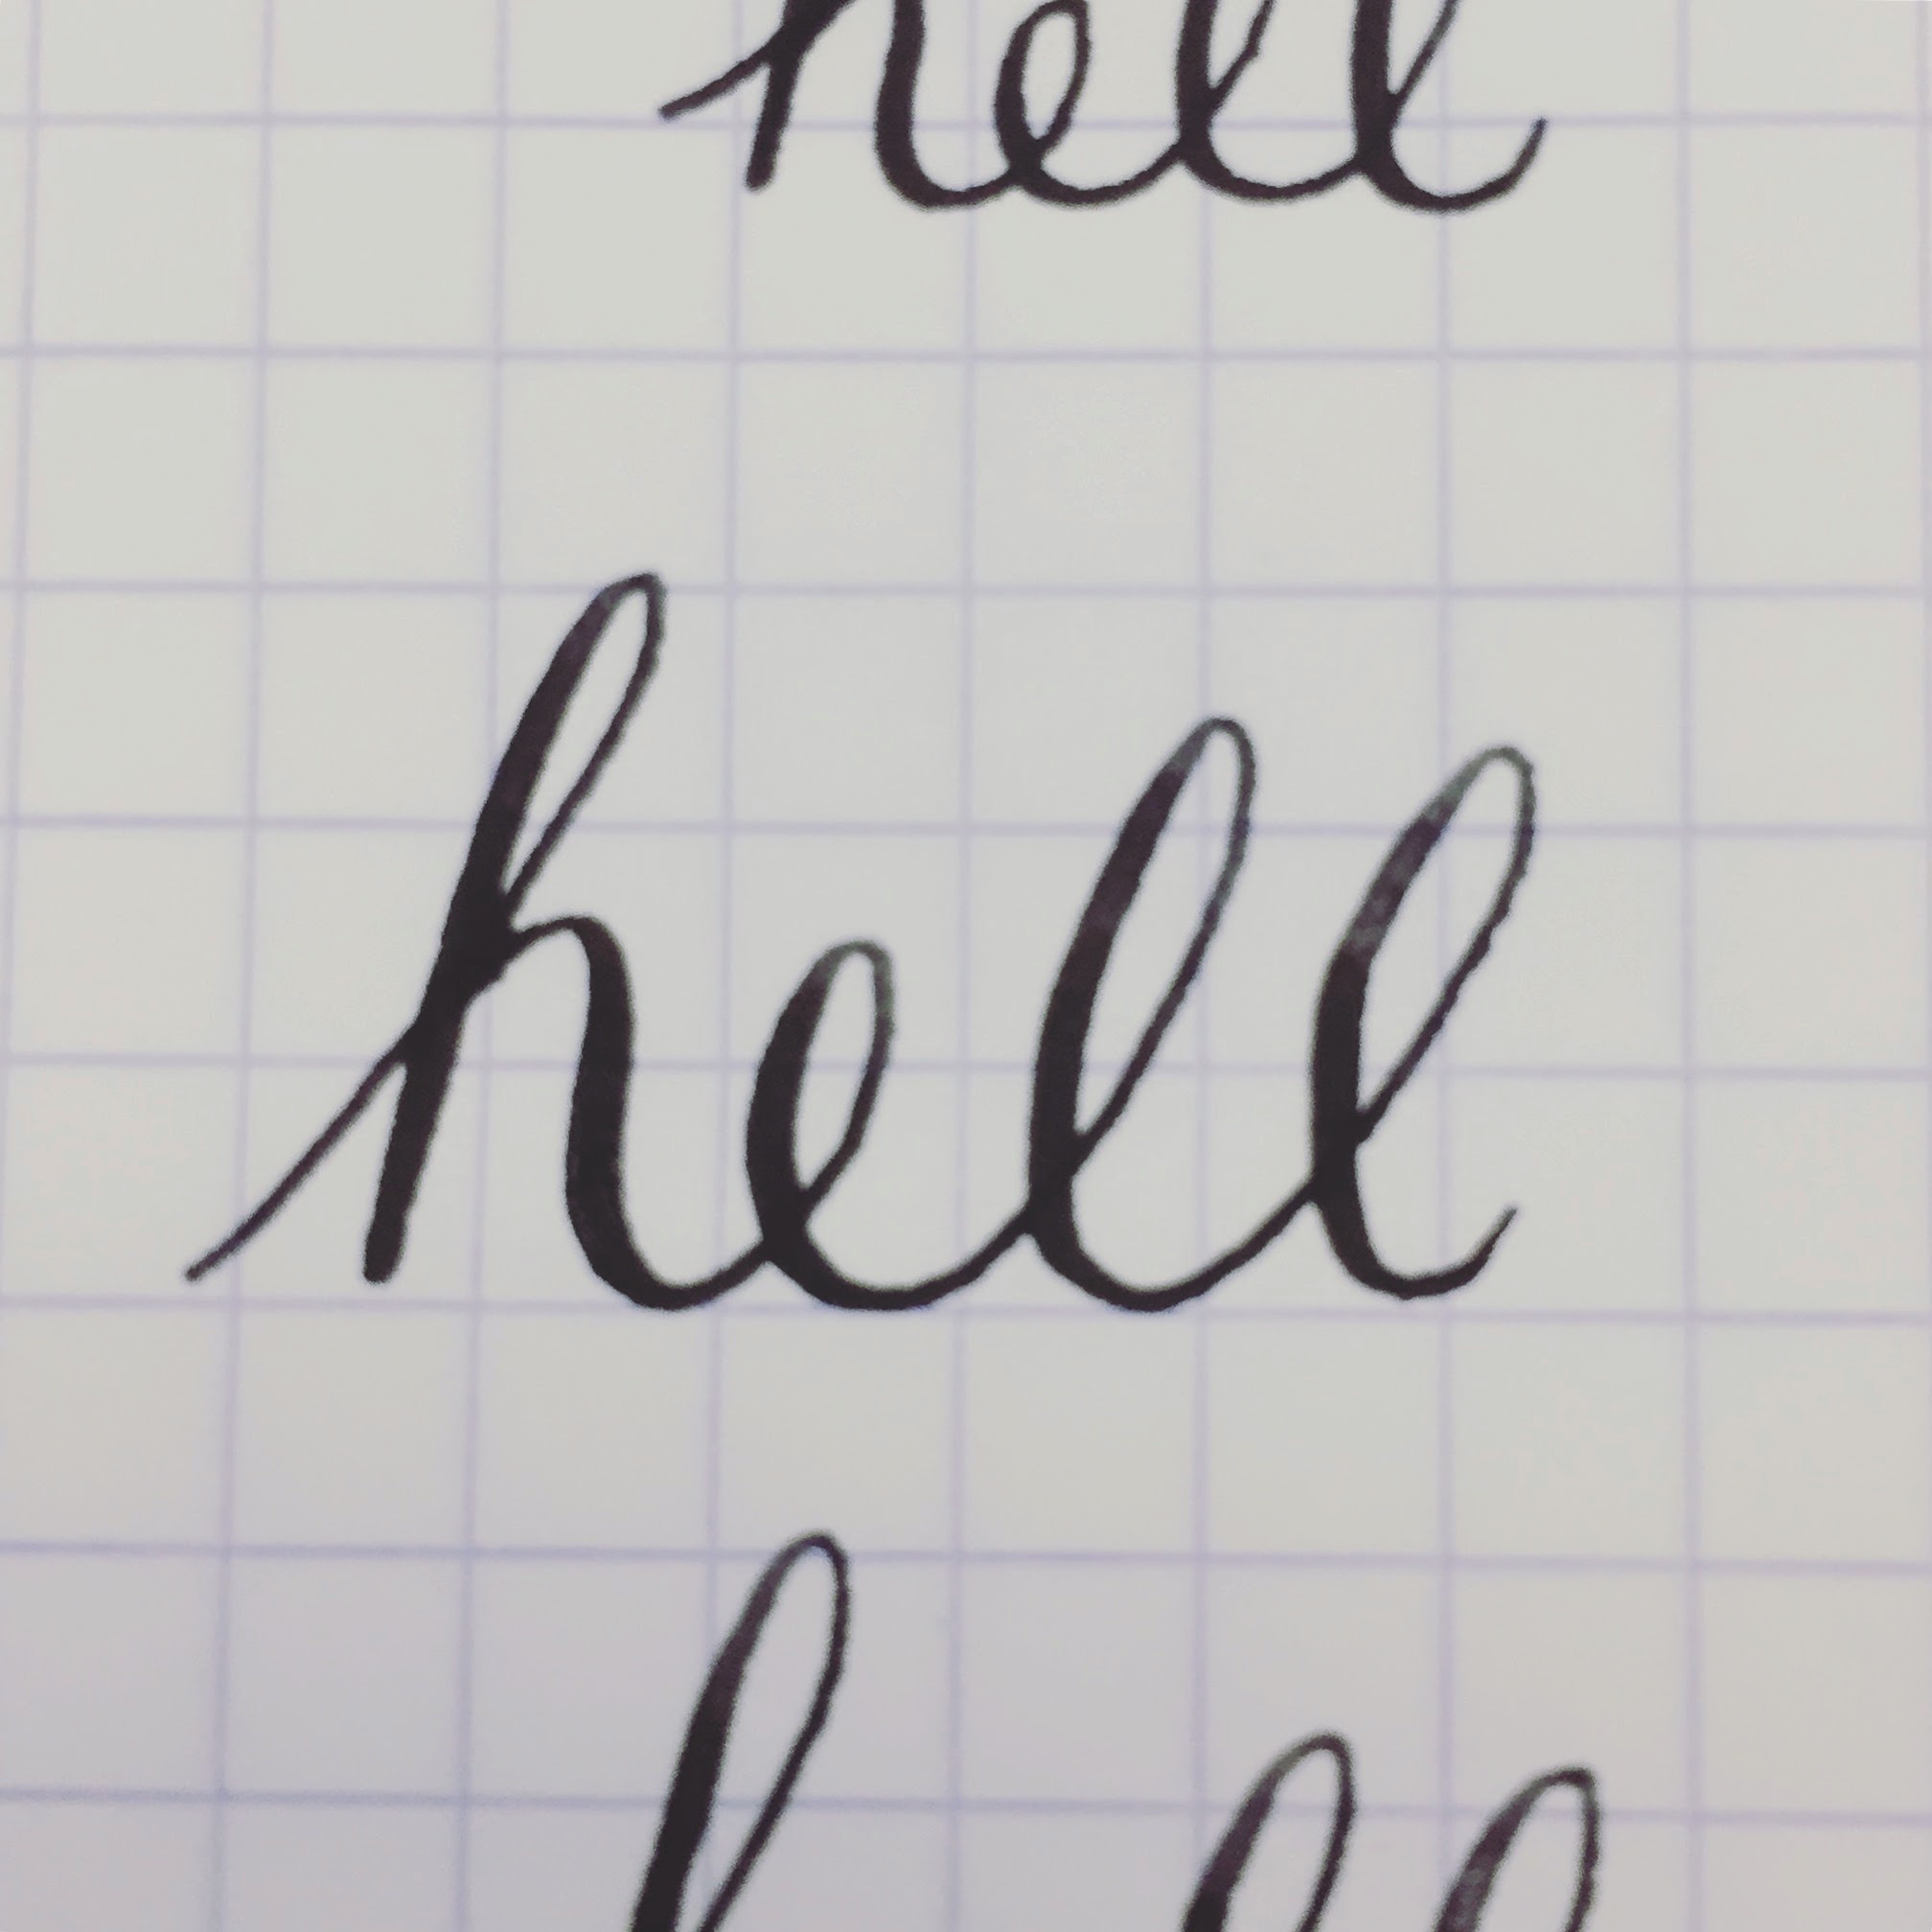 hell
hell